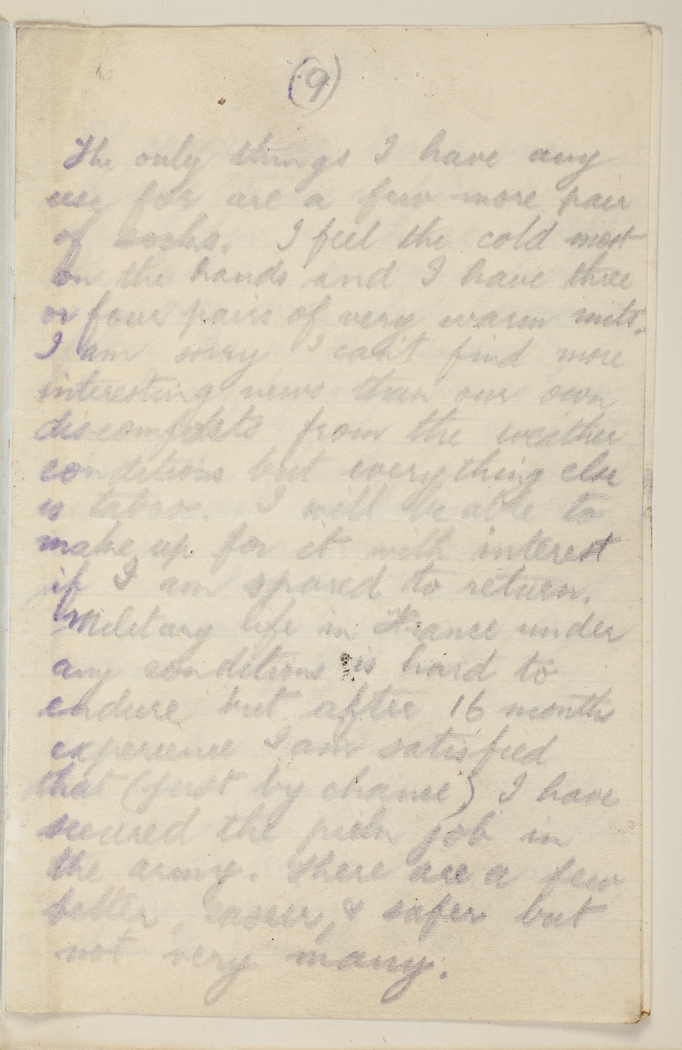 (9)
The only things I have any
use for are a few more pair
of socks. I feel the cold most
on the hands and I have three
or four pairs of very warm mits.
I am sorry I can't find more
interesting news than our own
discomforts from the weather
conditions but everything else
is taboo. I will be able to
make up for it with interest
if I am spared to return.
Military life in France under
any conditions is hard to
endure but after 16 months
experience I am satisfied
that (just by chance) I have
secured the pick job in
the army. There are a few
better, easier, & safer but
not very many.